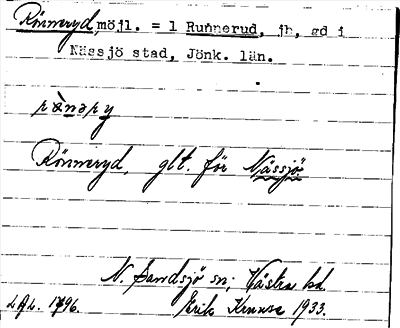 Rönneryd, möjl. = 1 Runnerud, jh, gd i
Nässjö stad, Jönk. län.
rǜnəry
Rönneryd, glt. för Nässjö
N. Sandsjö sn; Västra hd.
Erik Kruuse 1933.